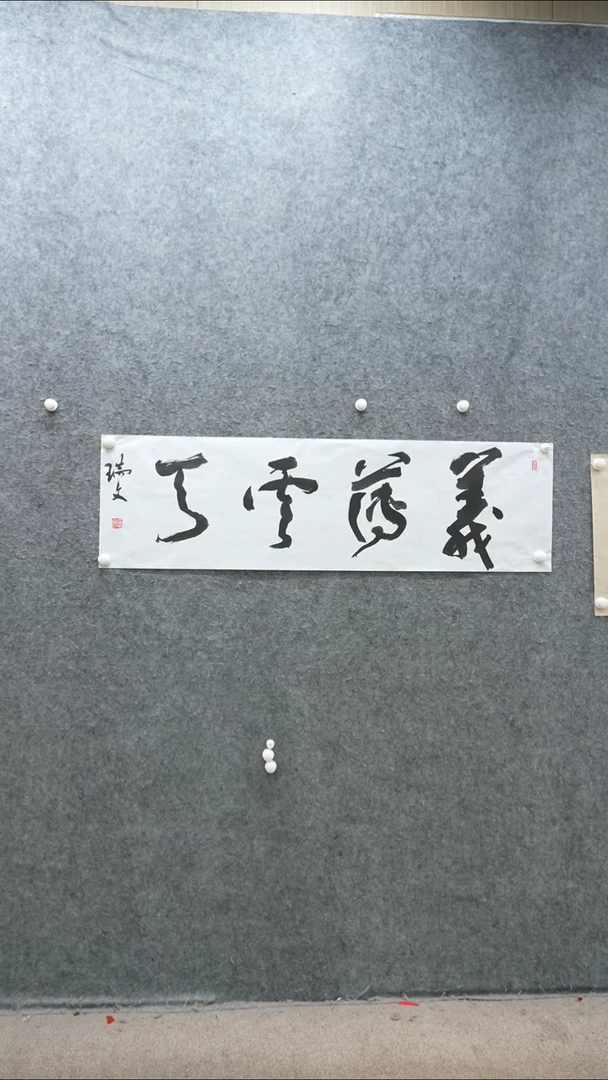 義薄雲天
瑞文